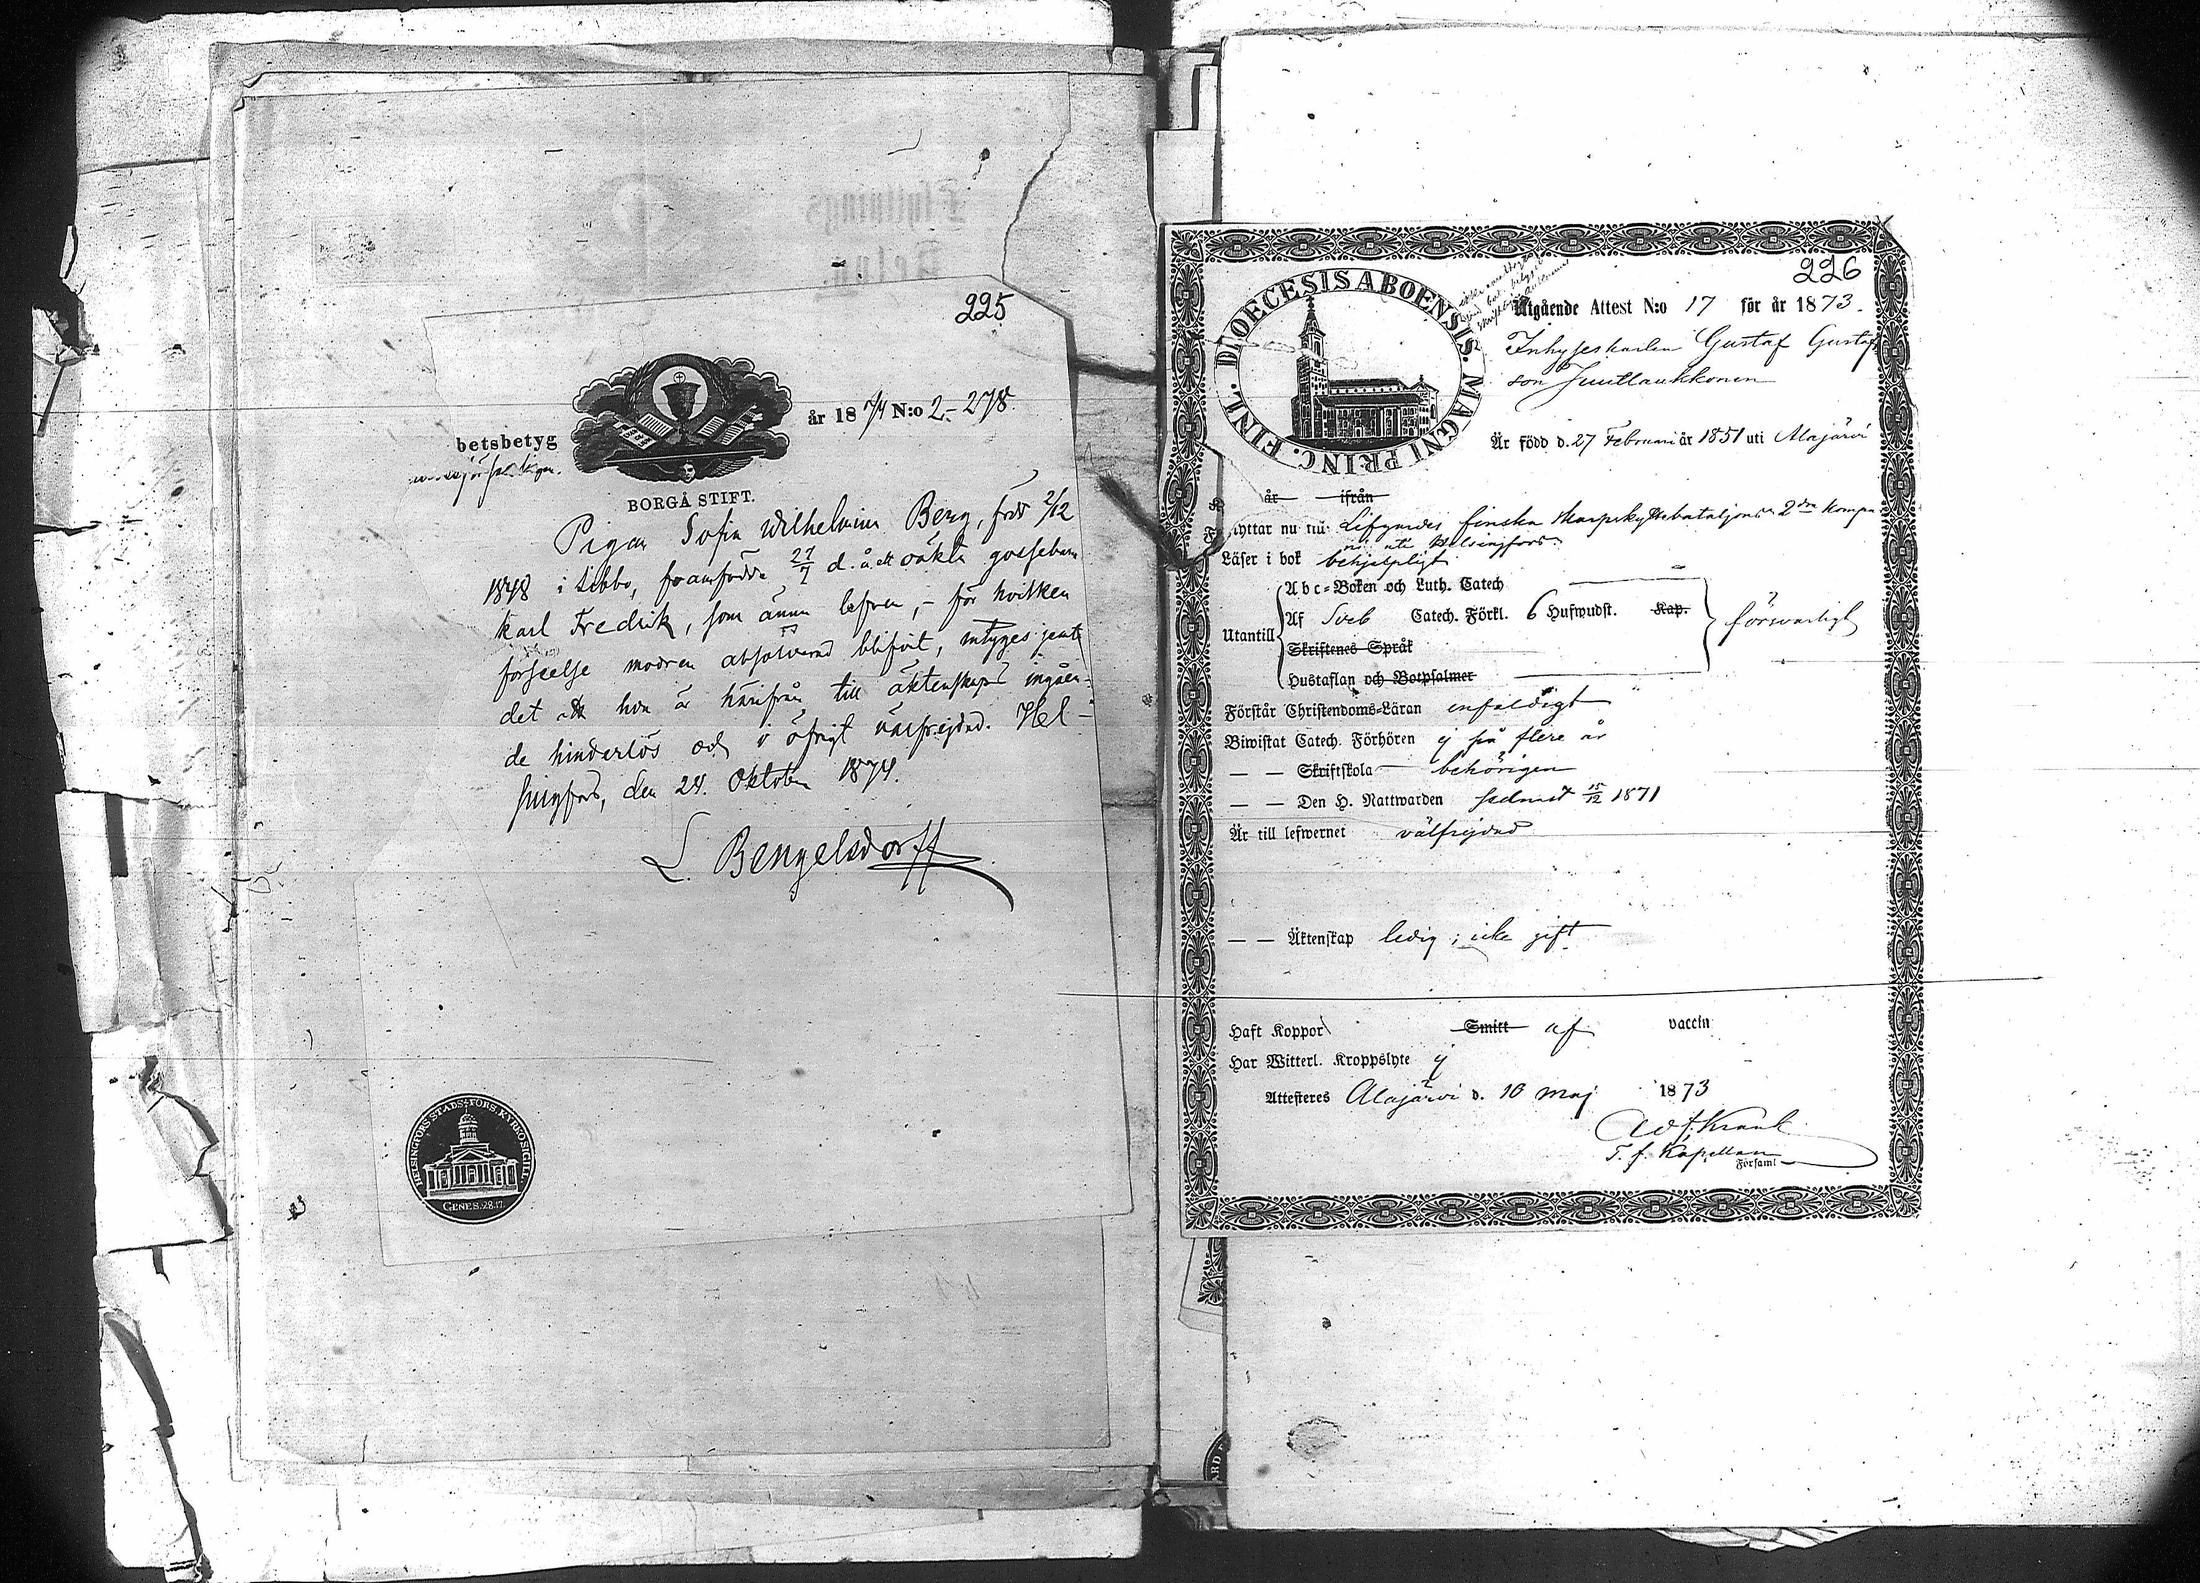 225
år 1874 N:o 2.-278.
betsbetyg
BORGÅ STIFT.
Pigan Sofia Wilhelmina Berg, född 2/12
1848 i Sibbo, framfödde 27/7 d. å. ett oäkta gossebarn
Karl Fredrik, som ännu lefver, – för hvilken
förseelse modren absolverad blifvit, intygas jemte
det att hon är härifrån till äktenskaps ingåen-
de hinderlös och i öfrigt välfrejdad. Hel-
singfors, den 24. Oktober 1874.
L. Bengelsdorff
HELSINGFORS STADS-FÖRS. KYRKOSIGILL
GENES. 28.17.
226
DIOECESIS ABOENSIS. MAGNI PRINC. FINL.
Utgående Attest N:o 17 för år 1873.
Inhyseskarlen Gustaf Gustaf
son Juutlaukkonen
Är född d. 27 Februari år 1851 uti Alajärvi
år ifrån
Flyttar nu till Lifgardes finska skarpskyttebataljons 2dra kompa
ni uti Helsingfors.
Läser i bok behjelpligt
Abc-Boken och Luth. Catech
Utantill
Af Sveb Catech. Förkl. 6 Hufwudst. Kap. försvarligt
Skriftenes Språk
Hustaflan och Botpsalmer
Förstår Christendoms-Läran enfaldigt
Biwistat Catech. Förhören ej på flere år
— — Skriftskola behörigen
— — Den H. Nattwarden sednast 15/12 1871
Är till lefwernet välfrejdad
— — Äktenskap ledig; icke gift
Haft Koppor Smitt af vaccin
Har Witterl. Kroppslyte ej
Attesteres Alajärvi d. 10 maj 1873
Ad. f. Krank
T. f. Kapellan
Församl